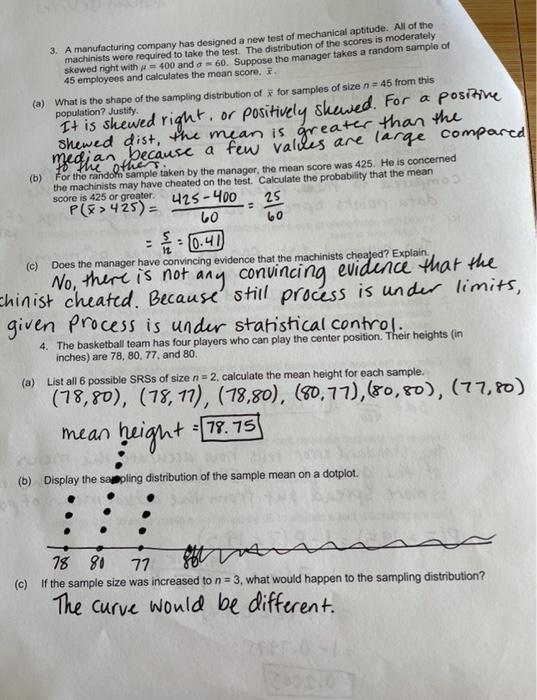 3. A manufacturing company has designed a new test of mechanical aptitude. All of the
machinists were required to take the test. The distribution of the scores is moderately
skewed right with μ = 400 and σ = 60. Suppose the manager takes a random sample of
45 employees and calculates the mean score, x̄.
(a) What is the shape of the sampling distribution of x̄ for samples of size n = 45 from this
population? Justify.
It is skewed right, or positively skewed. For a positive
skewed dist, the mean is greater than the
median because a few values are large compared
to the others.
(b) For the random sample taken by the manager, the mean score was 425. He is concerned
the machinists may have cheated on the test. Calculate the probability that the mean
score is 425 or greater.
P(x̄ > 425) = 425-400/60 = 25/60
= 5/12 = 0.41
(c) Does the manager have convincing evidence that the machinists cheated? Explain.
No, there is not any convincing evidence that the
chinist cheated. Because still process is under limits,
given Process is under statistical control.
4. The basketball team has four players who can play the center position. Their heights (in
inches) are 78, 80, 77, and 80.
(a) List all 6 possible SRSs of size n = 2, calculate the mean height for each sample.
(78,80), (78,77), (78,80), (80,77), (80,80), (77,80)
mean height = 78.75
(b) Display the sampling distribution of the sample mean on a dotplot.
78 80 77
(c) If the sample size was increased to n = 3, what would happen to the sampling distribution?
The curve would be different.